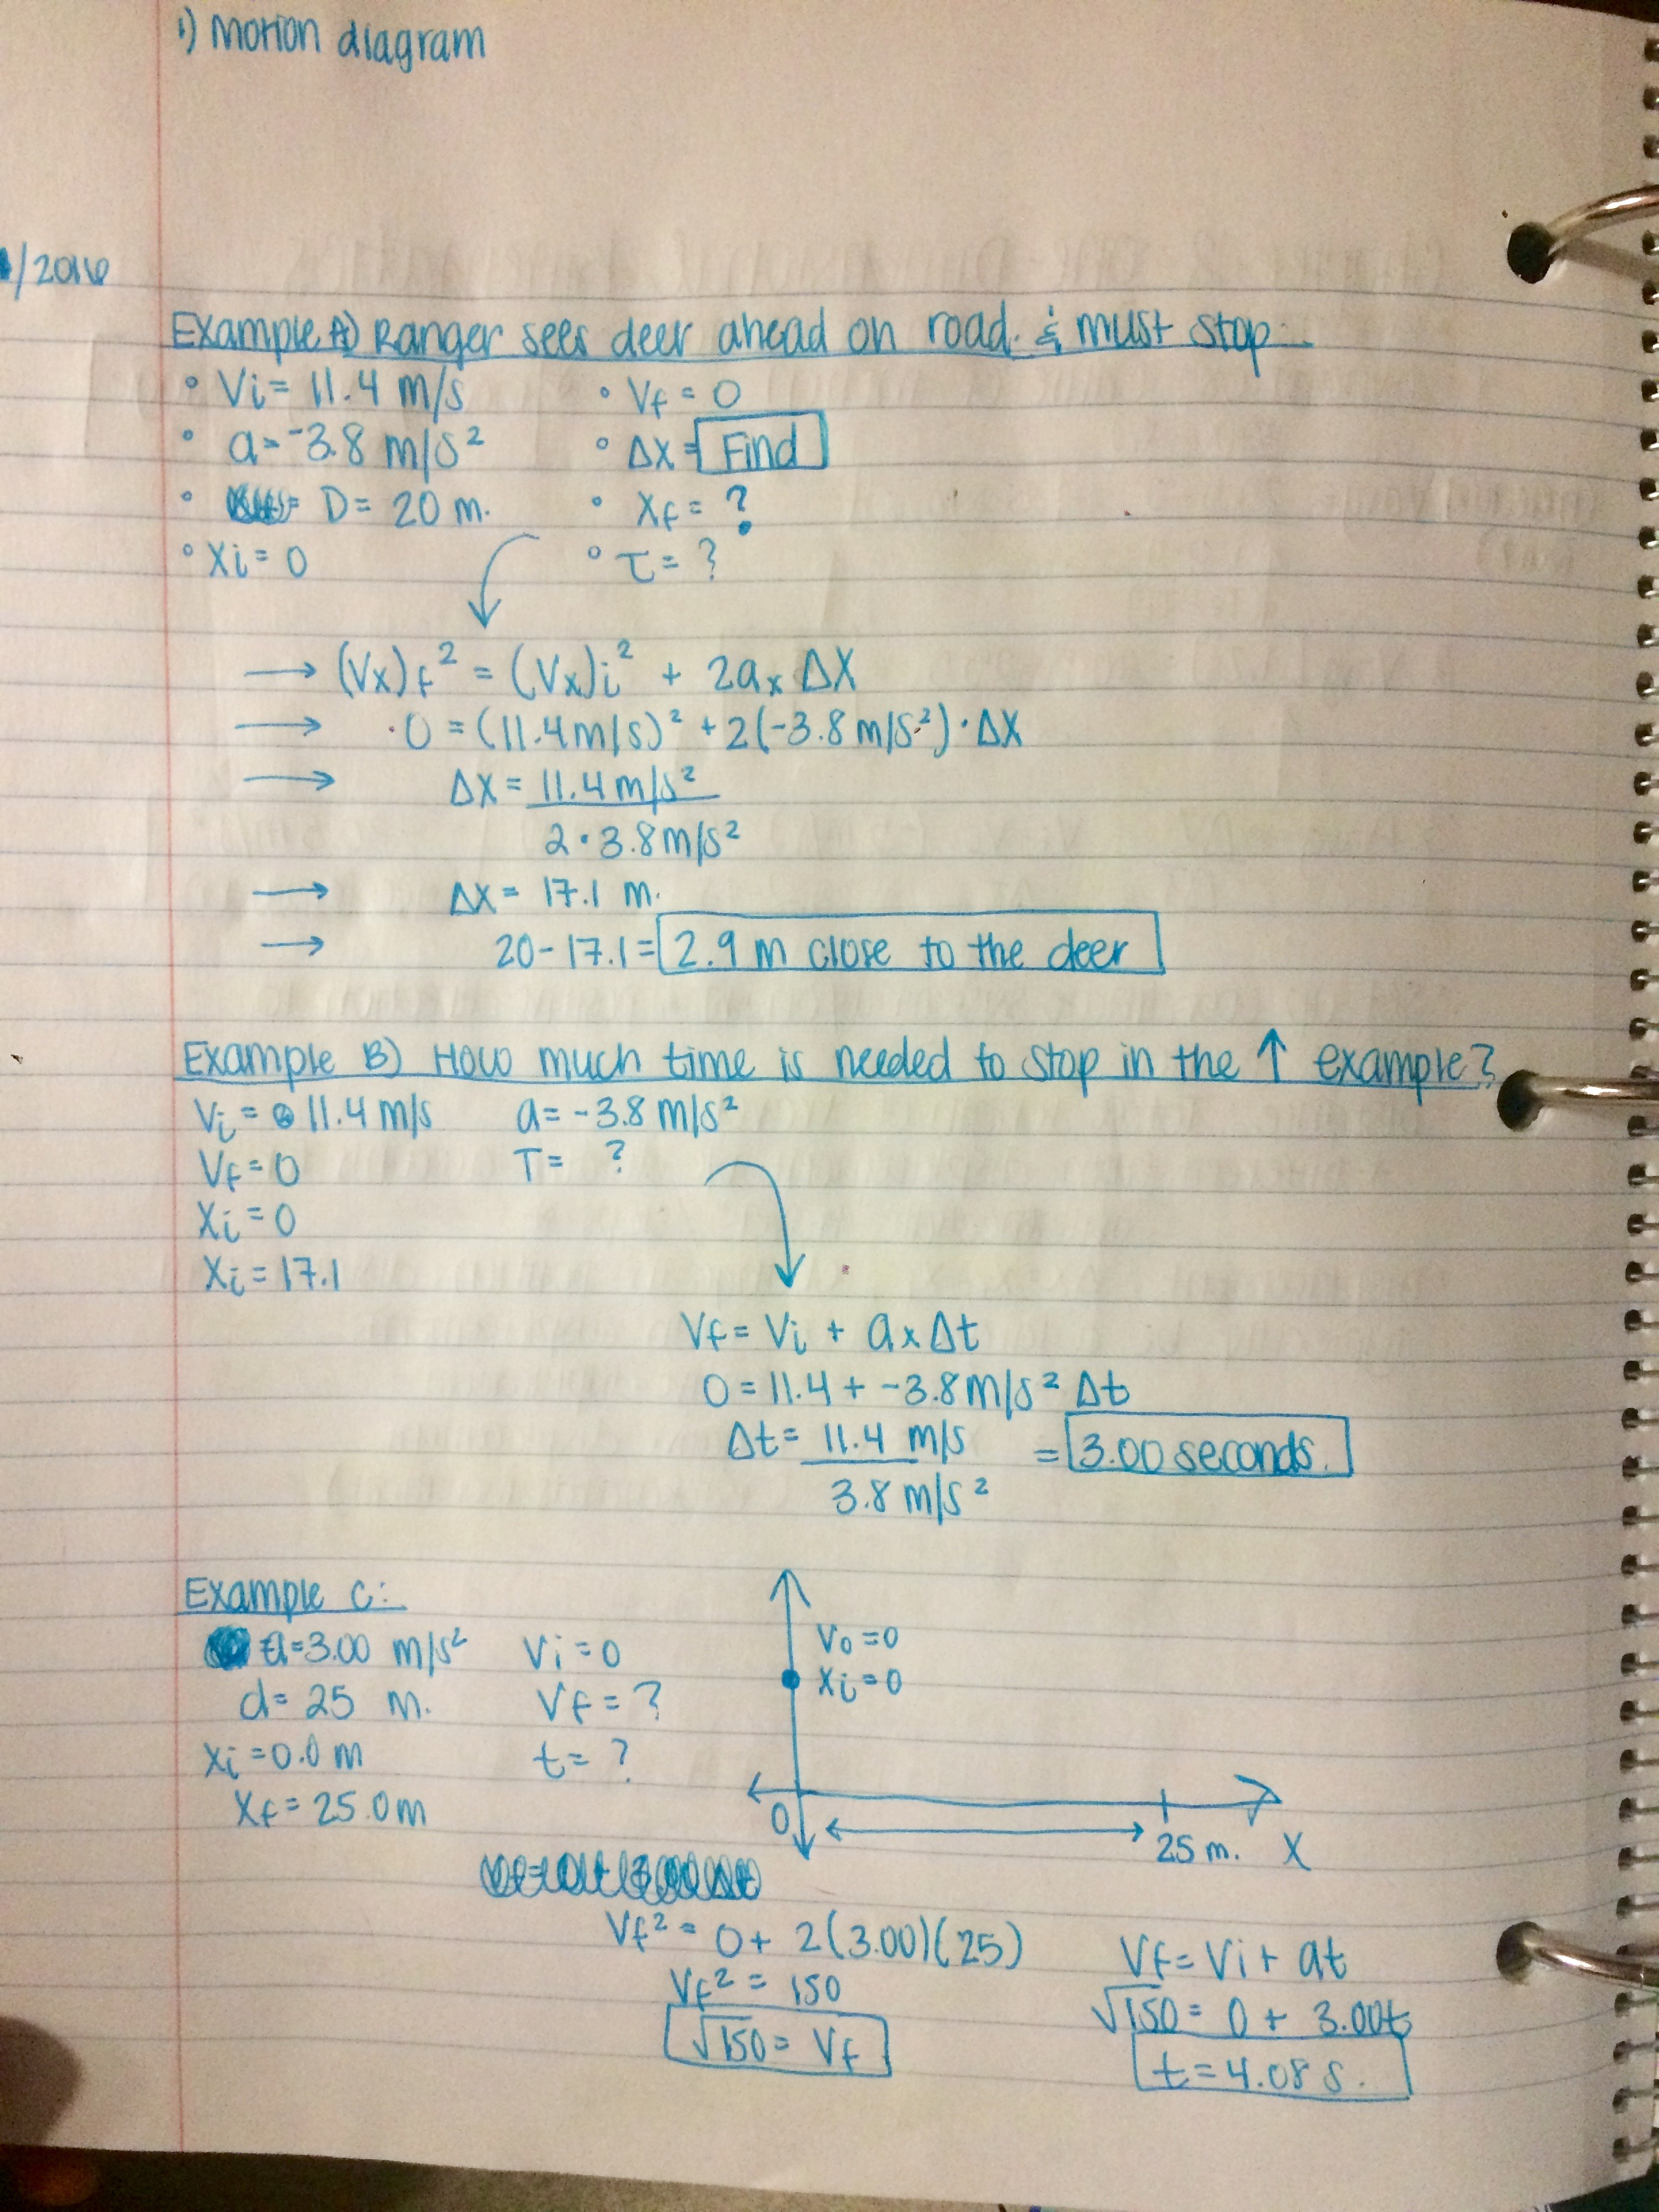 1) Motion diagram
/2016
Example A) Ranger sees deer ahead on road. & must stop.
° Vi = 11.4 m/s ° Vf = 0
° a = -3.8 m/s² ° Δx = Find
° D = 20 m. ° Xf = ?
° Xi = 0 ° T = ?
→ (Vx)f² = (Vx)i² + 2ax ΔX
→ 0 = (11.4 m/s)² + 2(-3.8 m/s²) · ΔX
→ ΔX = 11.4 m/s²
2 · 3.8 m/s²
→ ΔX = 17.1 m.
→ 20 - 17.1 = 2.9 m close to the deer
Example B) How much time is needed to stop in the ↑ example?
Vi = 11.4 m/s a = -3.8 m/s²
Vf = 0 T = ?
Xi = 0
Xi = 17.1
Vf = Vi + ax Δt
0 = 11.4 + -3.8 m/s² Δt
Δt = 11.4 m/s = 3.00 seconds.
3.8 m/s²
Example C:
a = 3.00 m/s² Vi = 0
d = 25 m. Vf = ?
Xi = 0.0 m t = ?
Xf = 25.0 m
V0 = 0
Xi = 0
0 25 m. X
Vf² = 0 + 2(3.00)(25)
Vf² = 150
√150 = Vf
Vf = Vi + at
√150 = 0 + 3.00t
t = 4.08 s.